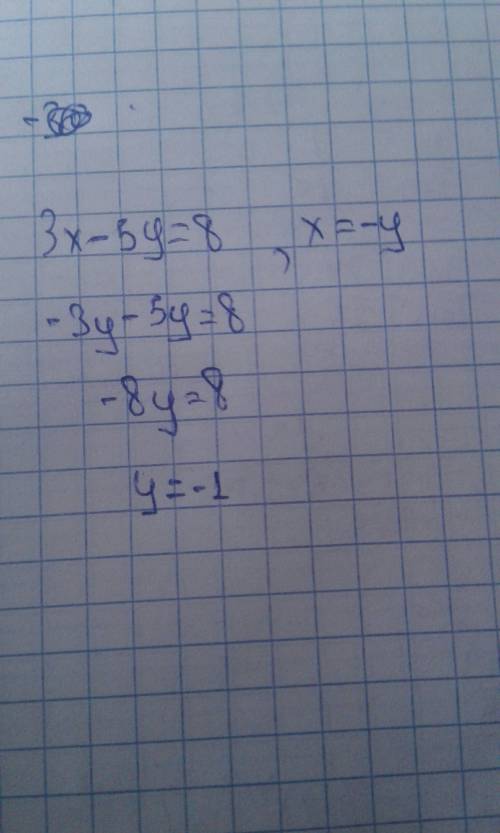 3x-5y=8 , x=-y
-3y-5y=8
-8y=8
y=-1